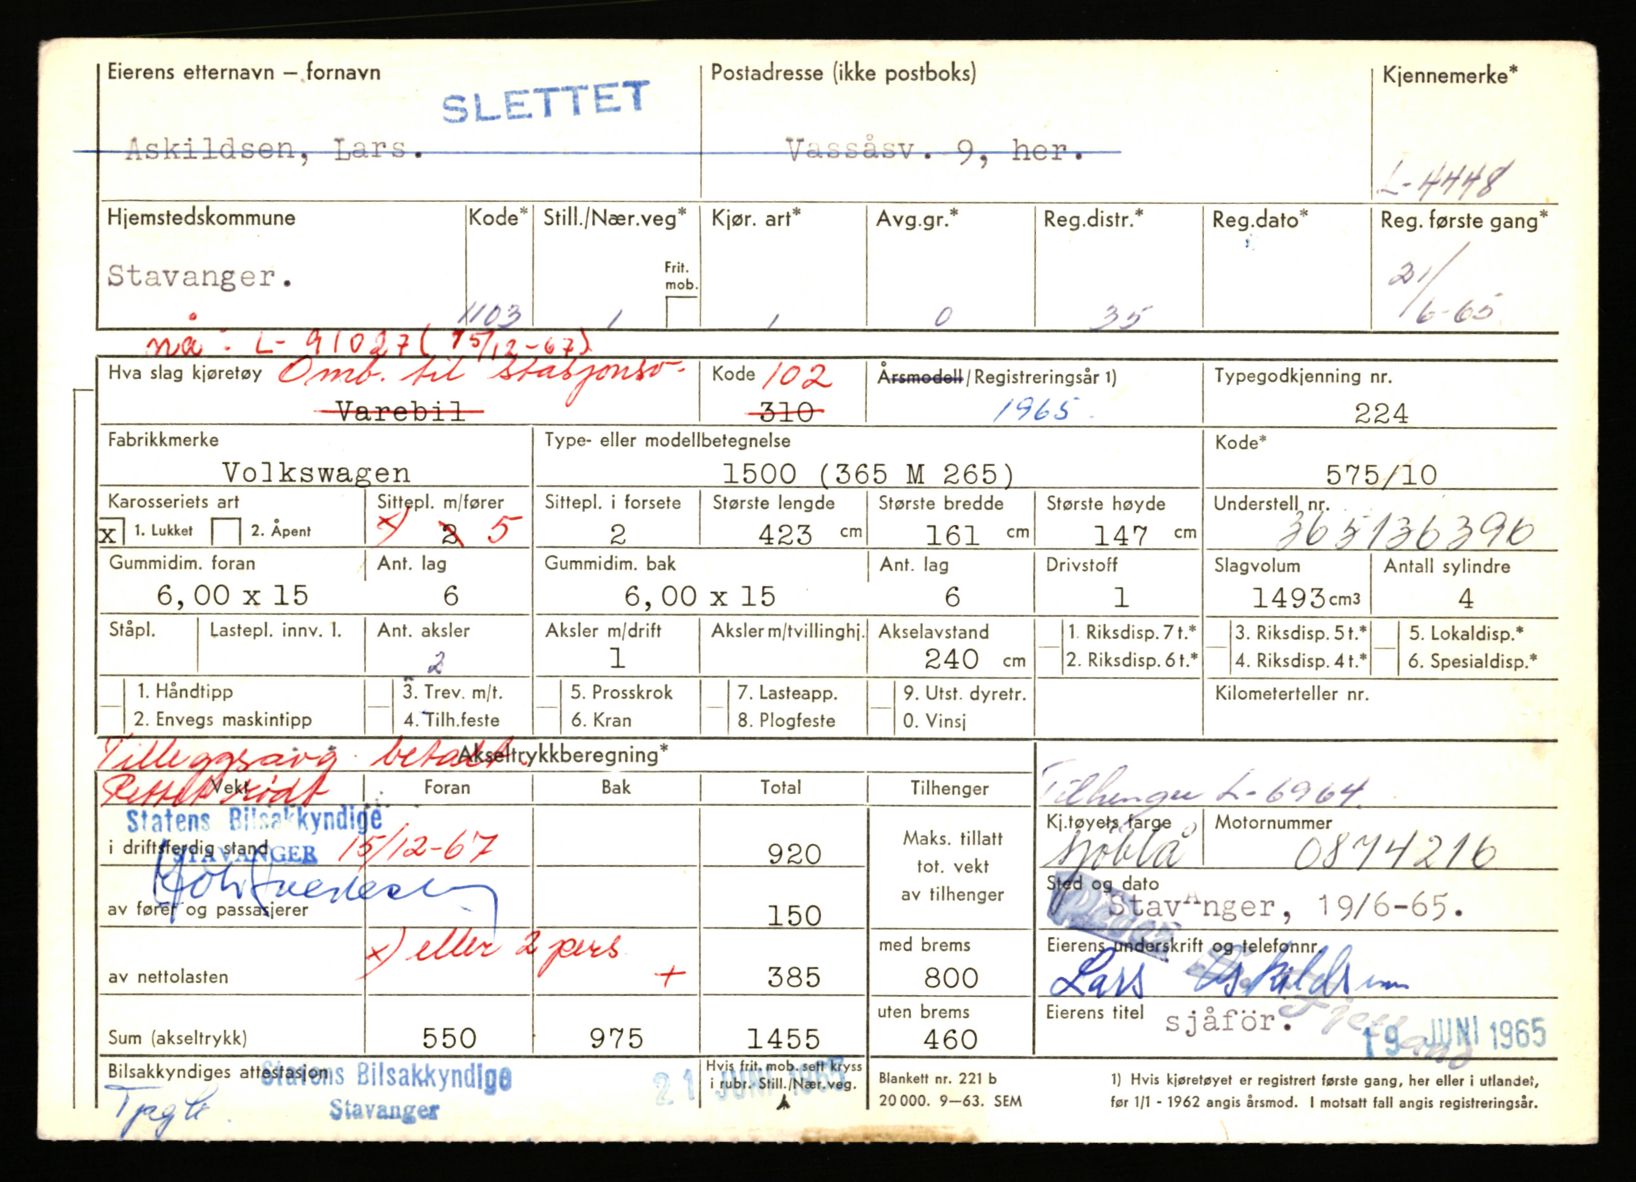 Eierens etternavn – fornavn
Postadresse (ikke postboks)
Kjennemerke*
SLETTET
Askildsen, Lars.
Vassåsv. 9, her.
L-4448
Hjemstedskommune
Kode*
Still./Nær.veg*
Kjør. art*
Avg.gr.*
Reg.distr.*
Reg.dato*
Reg. første gang*
Frit. mob.
Stavanger.
1103
1
1
0
35
21/6-65
nå: L-91027 (15/12-67)
Hva slag kjøretøy
Omb. til stasjonsv.
Kode
102
Årsmodell/Registreringsår 1)
Typegodkjenning nr.
Varebil
310
1965
224
Fabrikkmerke
Type- eller modellbetegnelse
Kode*
Volkswagen
1500 (365 M 265)
575/10
Karosseriets art
Sittepl. m/fører
Sittepl. i forsete
Største lengde
Største bredde
Største høyde
Understell nr.
x
1. Lukket
2. Åpent
x) 2 5
2
423 cm
161 cm
147 cm
365136396
Gummidim. foran
Ant. lag
Gummidim. bak
Ant. lag
Drivstoff
Slagvolum
Antall sylindre
6,00 x 15
6
6,00 x 15
6
1
1493 cm3
4
Ståpl.
Lastepl. innv. l.
Ant. aksler
Aksler m/drift
Aksler m/tvillinghj.
Akselavstand
1. Riksdisp. 7 t.*
3. Riksdisp. 5 t.*
5. Lokaldisp.*
2
1
240 cm
2. Riksdisp. 6 t.*
4. Riksdisp. 4 t.*
6. Spesialdisp.*
1. Håndtipp
3. Trev. m/t.
5. Prosskrok
7. Lasteapp.
9. Utst. dyretr.
Kilometerteller nr.
2. Envegs maskintipp
4. Tilh.feste
6. Kran
8. Plogfeste
0. Vinsj
Tilleggsavg. betalt.
Akseltrykkberegning*
Rettet rødt
Vekt
Foran
Bak
Total
Tilhenger
Tilhenger L-6964.
Statens Bilsakkyndige
STAVANGER
15/12-67
i driftsferdig stand
920
Maks. tillatt
tot. vekt
av tilhenger
Kj.tøyets farge
Motornummer
sjöblå
0874216
av fører og passasjerer
150
Sted og dato
Stavanger, 19/6-65.
x) eller 2 pers
+
av nettolasten
385
med brems
800
Eierens underskrift og telefonnr.
Lars Askildsen
Sum (akseltrykk)
550
975
1455
uten brems
460
Eierens titel
sjåfør.
19 JUNI 1965
Bilsakkyndiges attestasjon
Statens Bilsakkyndige
Stavanger
21 JUNI 1965
Hvis frit. mob. sett kryss
i rubr. Still./Nær.veg.
Blankett nr. 221 b
20 000. 9–63. SEM
1) Hvis kjøretøyet er registrert første gang, her eller i utlandet,
før 1/1 - 1962 angis årsmod. I motsatt fall angis registreringsår.